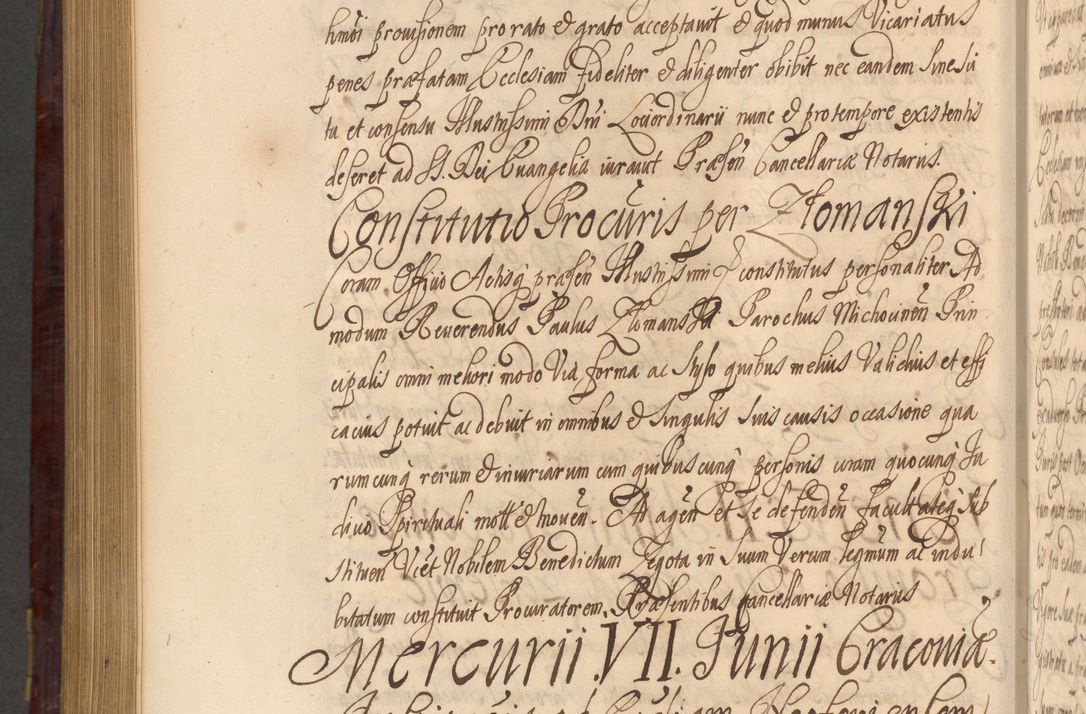 hmõi provisionem pro rato & grato acceptavit & quod munus Vicariatus
penes præfatam Ecclesiam fideliter & diligenter obibit nec eandem sine sci
tu et consensu Illustrissimi Dñi Lociordinarii nunc & pro tempore existentis
deseret ad SS. Dei Evangelia iuravit Præsen̄ Cancellariæ Notariis.
Constitutio Procuris per Złomanski
Coram Officio Actisq̃ præsen̄ Illustrissimi constitutus personaliter Ad
modum Reverendus Paulus Złomanski Parochus Michovinen̄ Prin
cipalis omni meliori modo Via forma ac stylo quibus melius Validius et effi
cacius potuit ac debuit in omnibus & singulis suis causis occasione qua
rumcunq̃ rerum & iniuriarum cum quibuscunq̃ personis coram quocunq̃ Ju
dicio Spirituali mott̃ & moven̄. Ad agen̄ et se defenden̄ facultateq̃ sub
stituen̄ Vicẽt Nobilem Benedictum Zegota in suum Verum legmum ac indu
bitatum constituit Procuratorem, Præsentibus Cancellariæ Notariis
Mercurii. VII. Junii Cracoviæ.